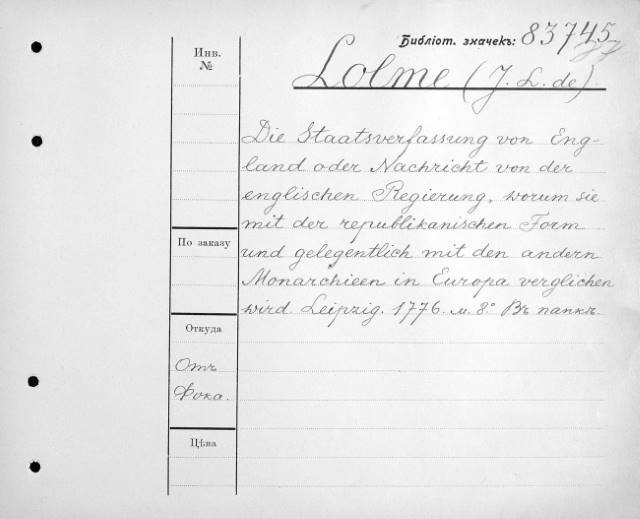 Библіот. значекъ: 83745
27
Инв.
№
Lolme (J. L. de).
Die Staatsverfassung von Eng-
land oder Nachricht von der
englischen Regierung, worum sie
mit der republikanischen Form
По заказу
und gelegentlich mit den andern
Monarchieen in Europa verglichen
wird. Leipzig. 1776. м. 8° Въ папкѣ.
Откуда
Отъ
Фока.
Цѣна